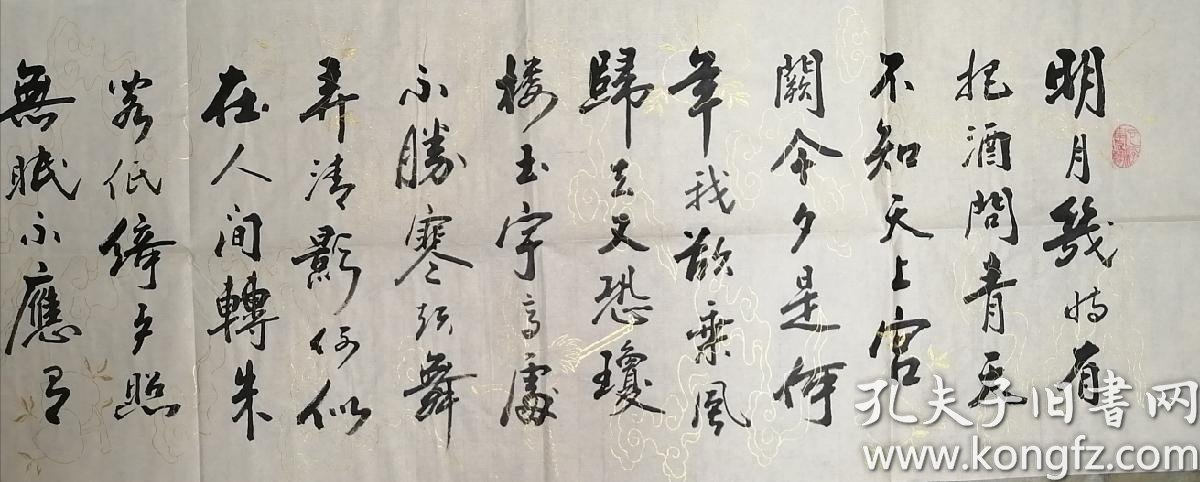 明月幾時有
把酒問青天
不知天上宫
闕今夕是何
年我欲乘風
歸去又恐瓊
楼玉宇高處
不勝寒起舞
弄清影何似
在人间轉朱
阁低綺户照
無眠不應有
孔夫子旧书网
www.kongfz.com